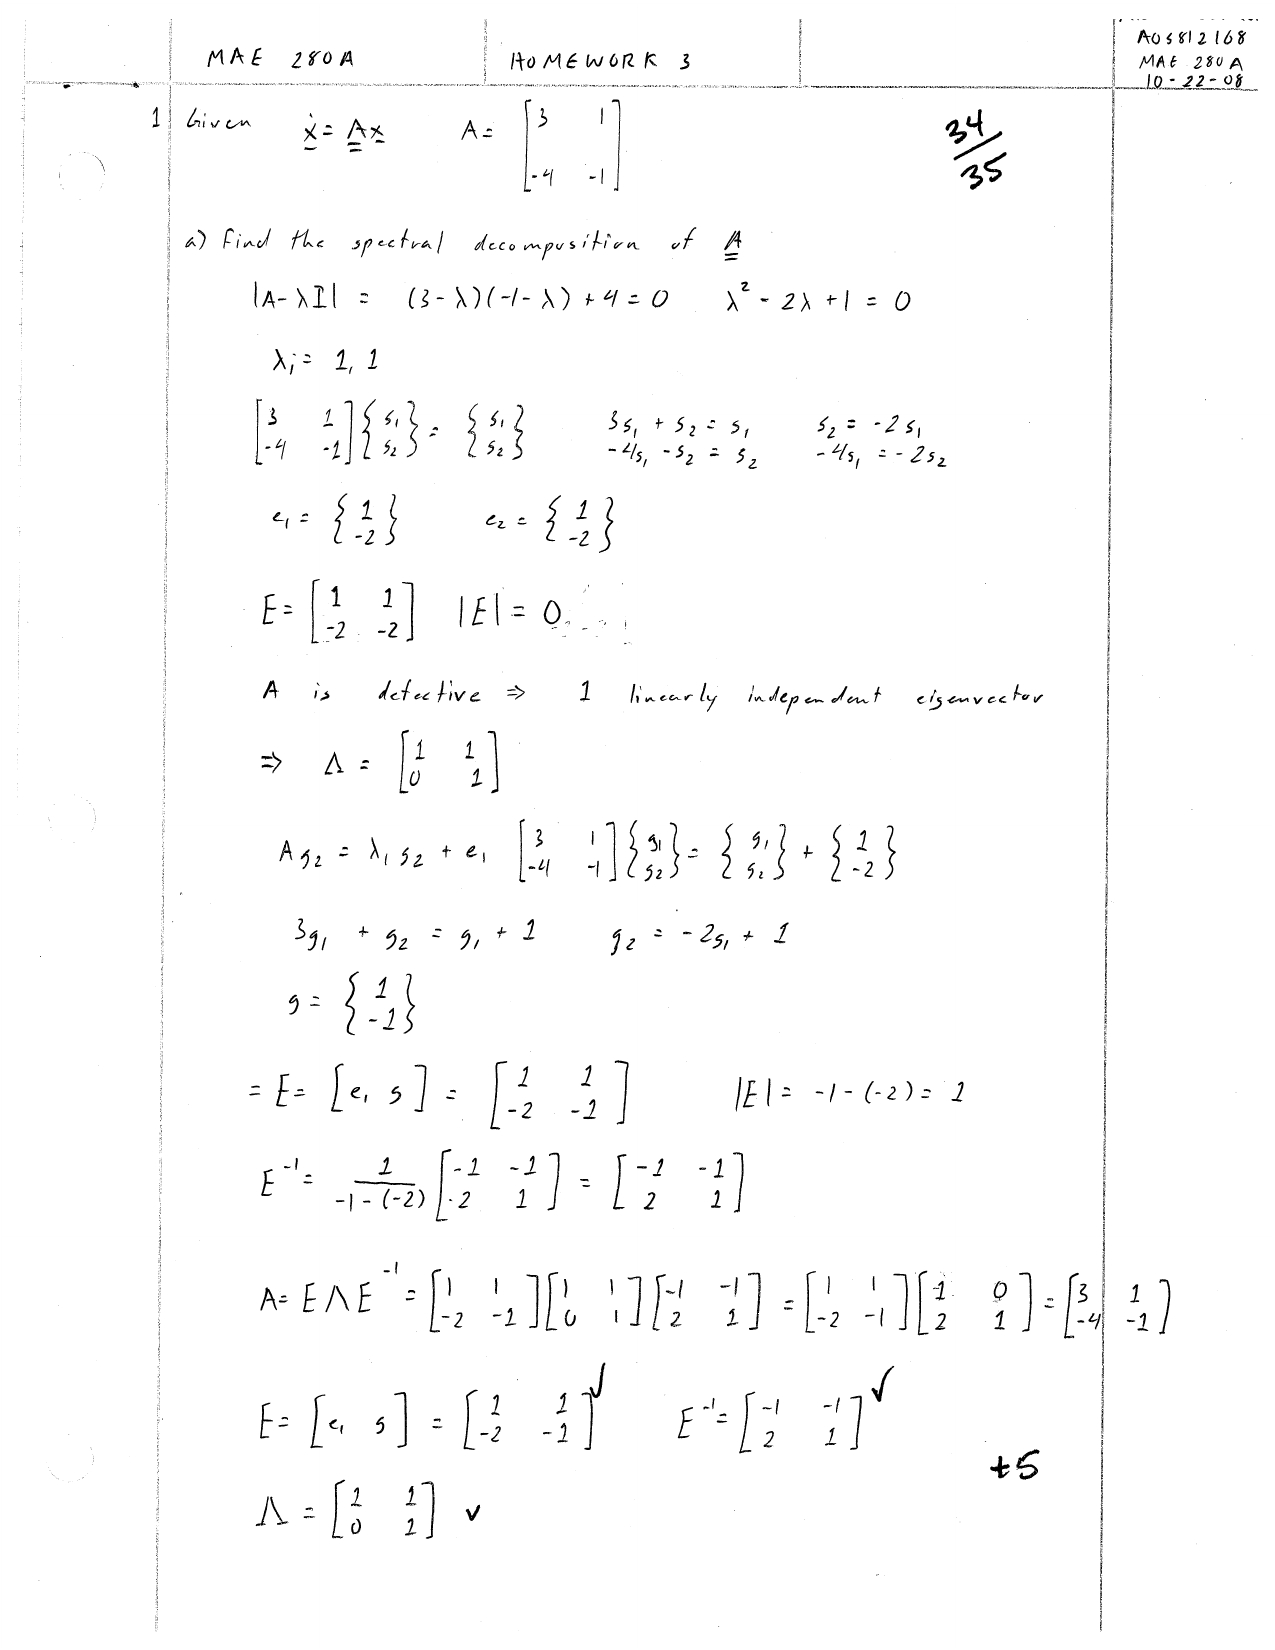 A05812168
MAE 280A HOMEWORK 3 MAE 280A
10-22-08
1 Given ẋ = A x A = [3 1; -4 -1] 34/35
a) Find the spectral decomposition of A
|A-λI| = (3-λ)(-1-λ)+4=0 λ² - 2λ + 1 = 0
λi = 1, 1
[3 1; -4 -1]{s₁; s₂} = {s₁; s₂} 3s₁ + s₂ = s₁ s₂ = -2s₁
-4s₁ - s₂ = s₂ -4s₁ = -2s₂
e₁ = {1; -2} e₂ = {1; -2}
E = [1 1; -2 -2] |E| = 0
A is defective ⇒ 1 linearly independent eigenvector
⇒ Λ = [1 1; 0 1]
A g₂ = λ₁ g₂ + e₁ [3 1; -4 -1]{g₁; g₂} = {g₁; g₂} + {1; -2}
3g₁ + g₂ = g₁ + 1 g₂ = -2g₁ + 1
g = {1; -1}
= E = [e₁ g] = [1 1; -2 -1] |E| = -1-(-2) = 1
E⁻¹ = 1/(-1-(-2)) [-1 -1; 2 1] = [-1 -1; 2 1]
A = E Λ E⁻¹ = [1 1; -2 -1][1 1; 0 1][-1 -1; 2 1] = [1 1; -2 -1][1 0; 2 1] = [3 1; -4 -1]
E = [e₁ g] = [1 1; -2 -1] ✓ E⁻¹ = [-1 -1; 2 1] ✓
+5
Λ = [1 1; 0 1] ✓